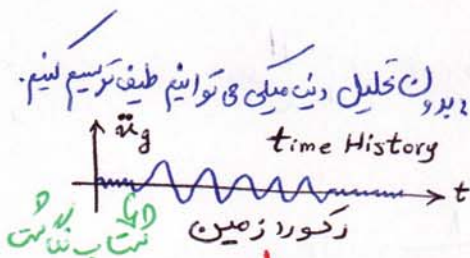 بدون تحلیل دینامیکی می توانیم طیف ترسیم کنیم.
üg
time History
t
رکورد زمین
شتاب نگاشت